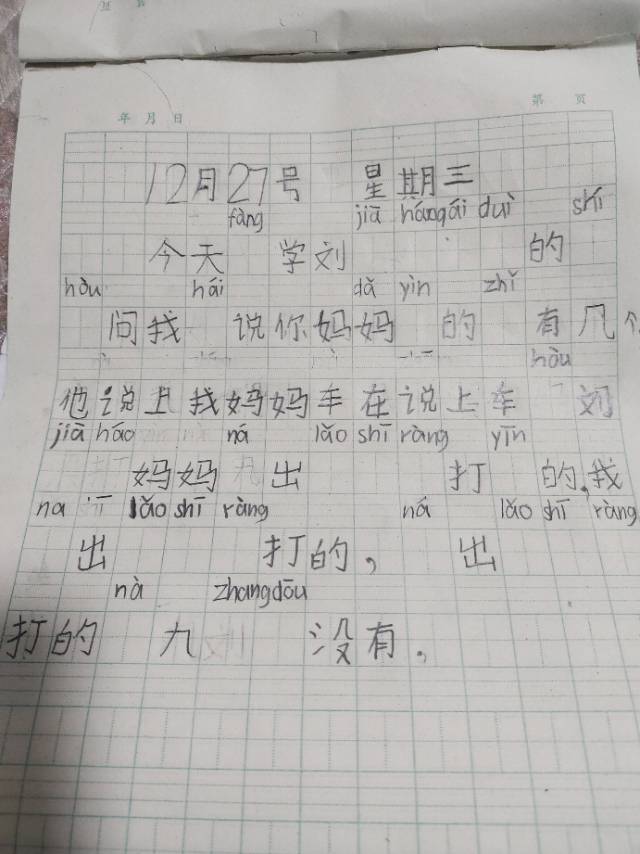 年 月 日
第 页
12月27号 星期三
fàng jiā háng ái duì shí
今天 学刘 的
hòu hái dǎ yìn zhǐ
问我 说你妈妈 的 有几个
hòu
他说上我妈妈车在说上车 刘
jiā háo ná lǎo shī ràng yīn
妈妈 出 打 的,我
na lǎo shī ràng ná lǎo shī ràng
出 打的, 出
nà zhang dōu
打的 九 没有,